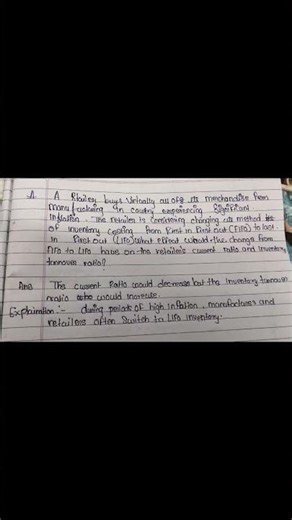 A. A Retailer buys Virtually all of its merchandise from
manufacturing in country experiencing Significant
Inflation. The retailer is Considering changing its method
of inventory costing from First in First out (FIFO) to last
in First out (LIFO) What effect would the change from
FIFO to LIFO have on the retailer's current ratio and inventory
turnover ratio?
Ans The current Ratio would decrease but the inventory turnover
ratio would increase.
Explaination :- during periods of high inflation, manufactures and
retailers often Switch to LIFO inventory.